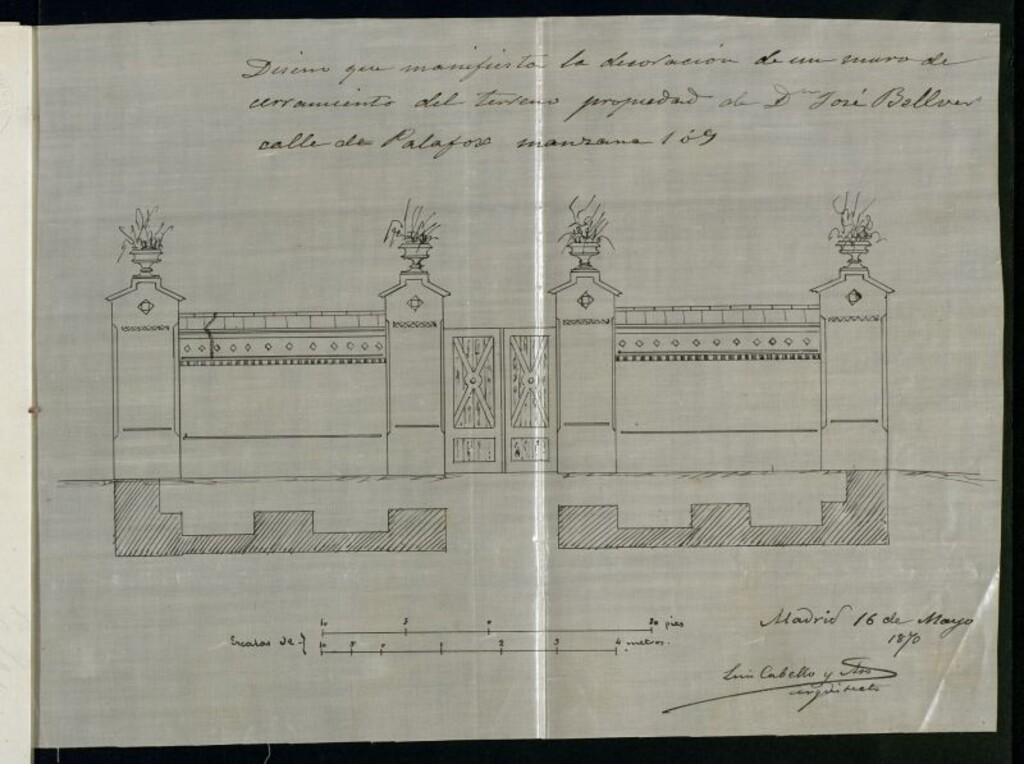 Diseno que manifiesta la decoracion de un muro de
cerramiento del terreno propiedad de Dn José Bellver
calle de Palafox manzana 1
10 5 0 20 pies
Escalas de
10 5 0 1 2 3 4 metros.
Madrid 16 de Mayo
1870
Luis Cabello y Aso
arquitecto